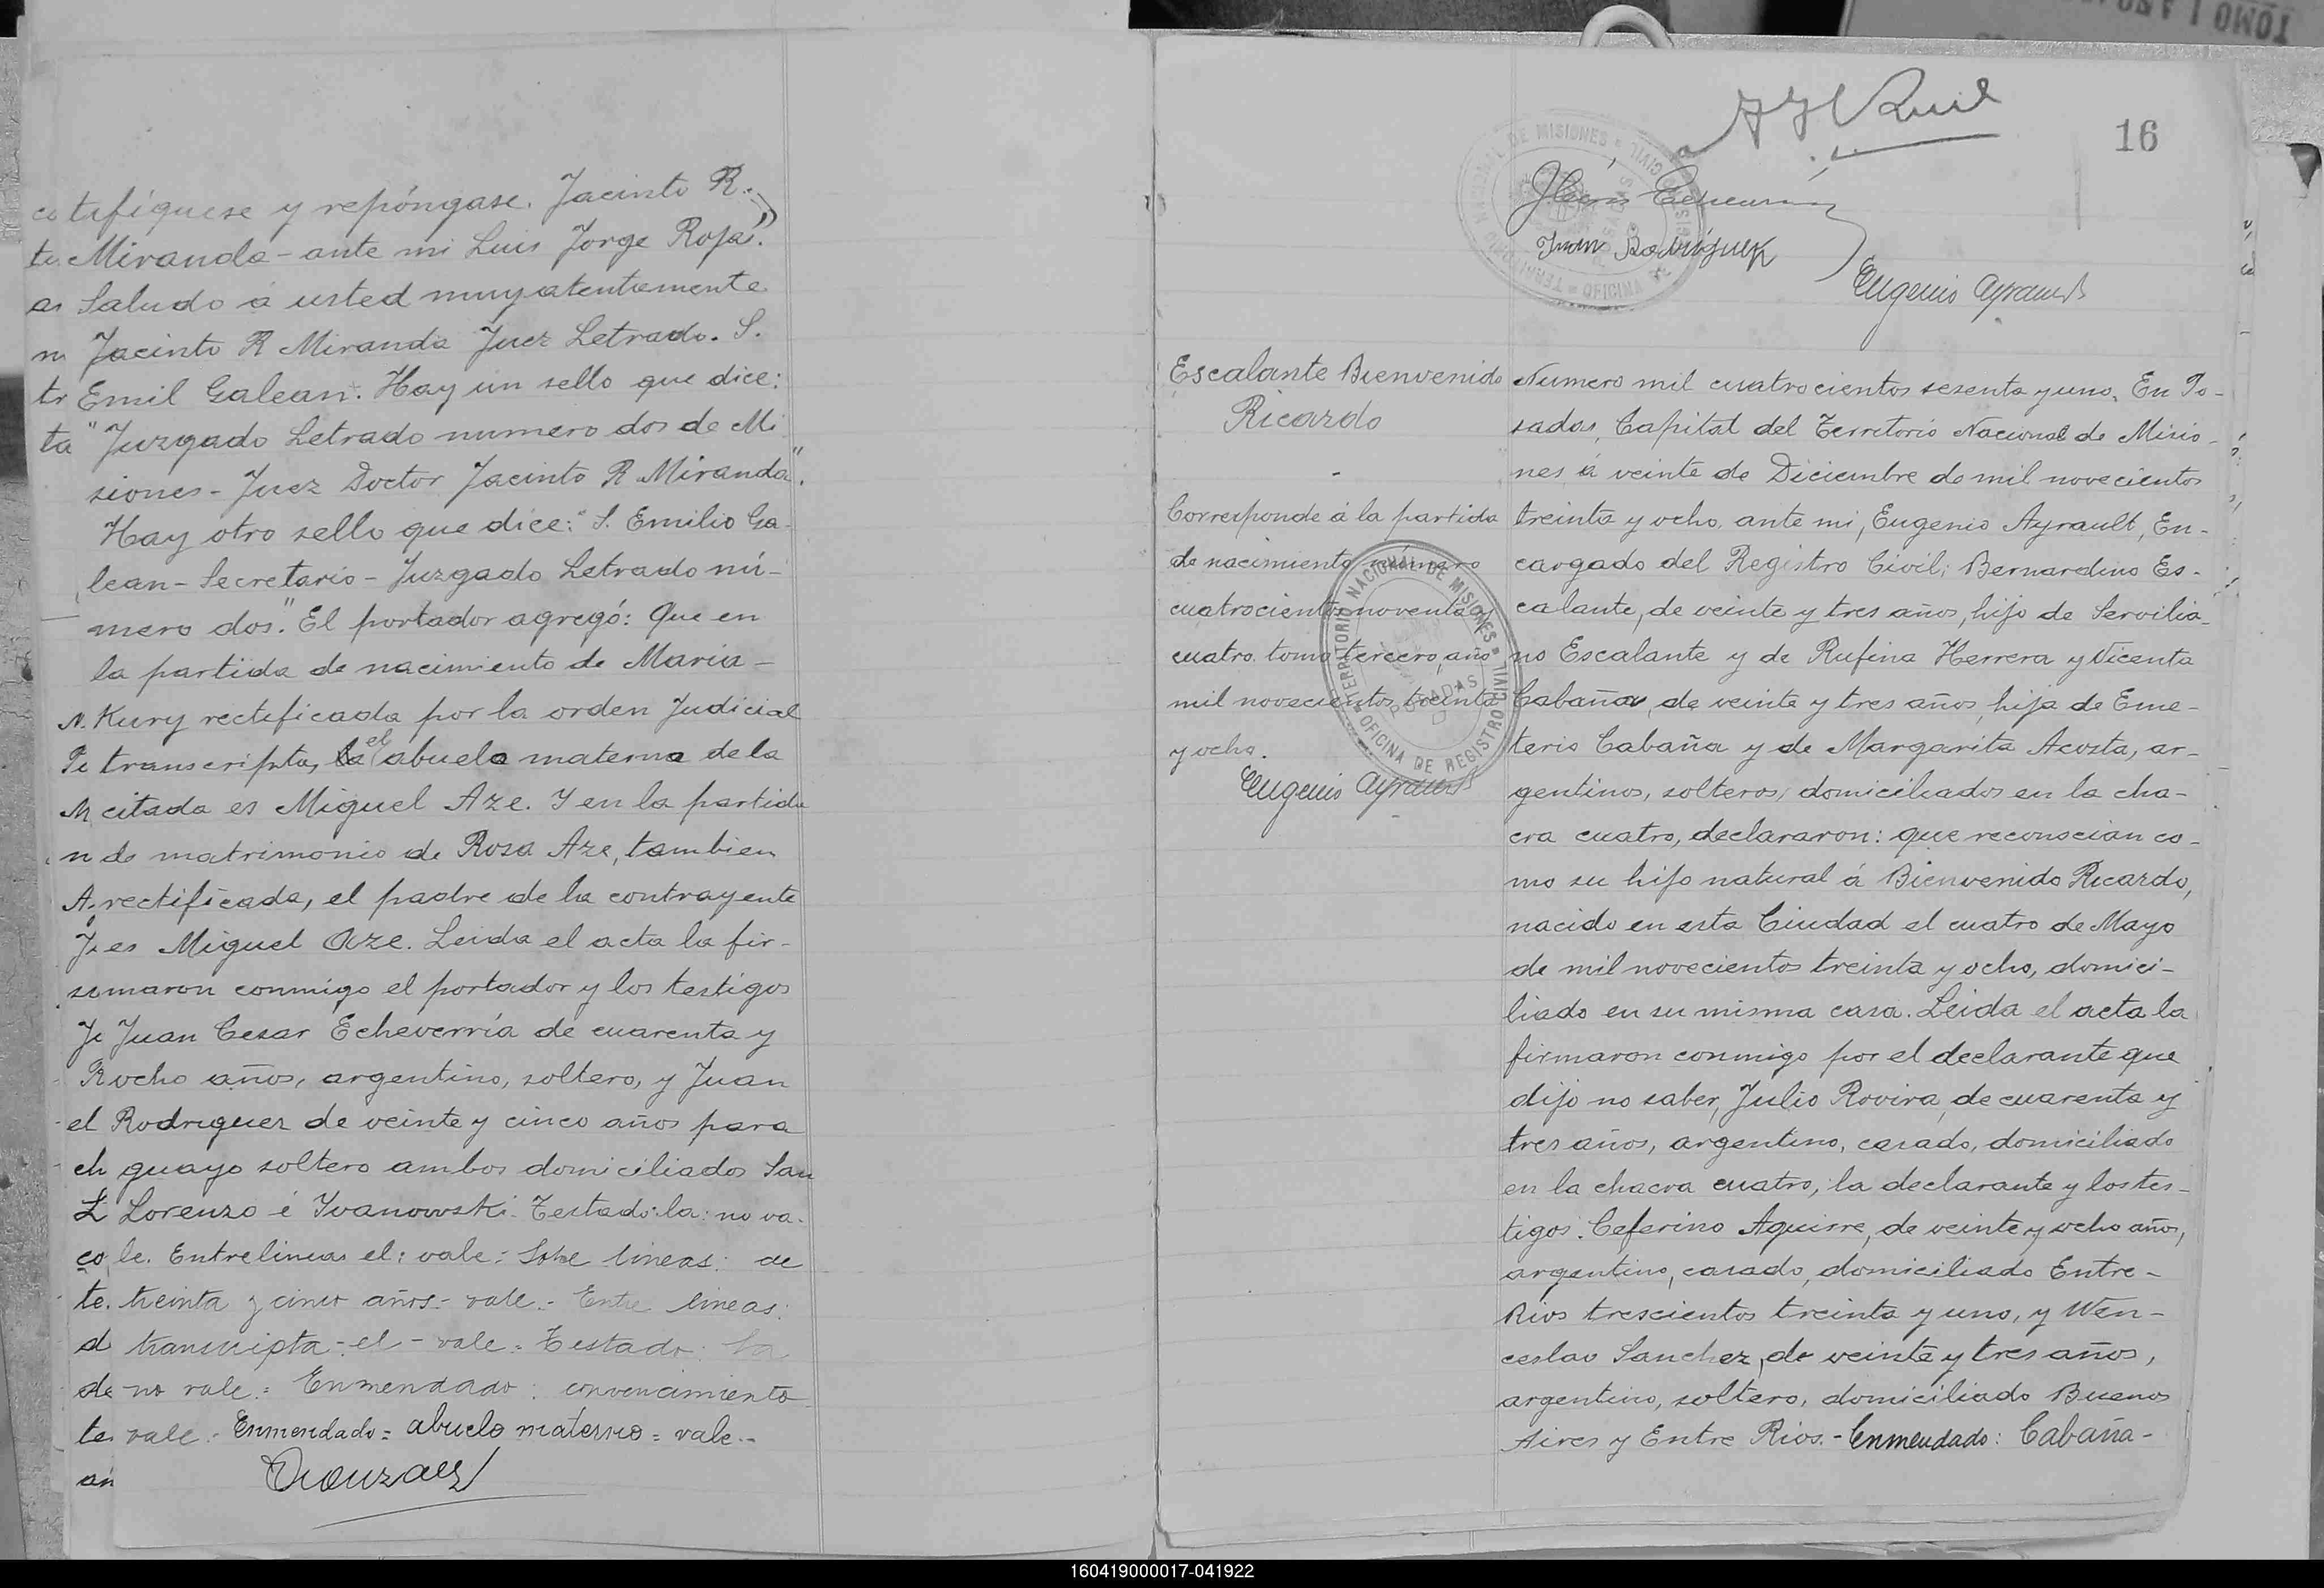 tifiquese y repóngase. Jacinto R.
Miranda - ante mi Luis Jorge Rojas."
Saludo á usted muy atentamente
Jacinto R Miranda Juez Letrado. S.
Emil Galean. Hay un sello que dice:
"Juzgado Letrado numero dos de Mi
siones - Juez Doctor Jacinto R Miranda".
Hay otro sello que dice: "S. Emilio Ga-
lean - Secretario - Juzgado Letrado nú-
mero dos." El portador agregó: Que en
la partida de nacimiento de Maria -
Kury rectificada por la orden Judicial
transcripta, la el abuelo materno de la
citada es Miguel Aze. Y en la partida
de matrimonio de Rosa Aze, tambien
rectificada, el padre de la contrayente
es Miguel Aze. Leida el acta la fir-
maron conmigo el portador y los testigos
Juan Cesar Echeverría de cuarenta y
ocho años, argentino, soltero, y Juan
Rodriguez de veinte y cinco años para
guayo soltero ambos domiciliados San
Lorenzo é Ivanowski. Testado: la: no va-
le. Entrelineas el: vale: Sobre lineas: de
treinta y cinco años - vale - Entre lineas:
transcripta - el - vale = Testado: la
no vale = Enmendado: convencimiento
vale - Enmendado = abuelo materno = vale -
TOMO I AÑO
16
Juan Rodriguez
Eugenio Ayrault
TERRITORIO NACIONAL DE MISIONES
OFICINA DE REGISTRO CIVIL
POSADAS
Escalante Bienvenido
Ricardo
-
Corresponde á la partida
de nacimiento número
cuatrocientos noventa y
cuatro. tomo tercero, año
mil novecientos treinta
y ocho.
Eugenio Ayrault
TERRITORIO NACIONAL DE MISIONES
OFICINA DE REGISTRO CIVIL
POSADAS
Numero mil cuatrocientos sesenta y uno. En Po-
sadas, Capital del Territorio Nacional de Misio-
nes á veinte de Diciembre de mil novecientos
treinta y ocho, ante mi, Eugenio Ayrault, En-
cargado del Registro Civil; Bernardino Es-
calante, de veinte y tres años, hijo de Servilia-
no Escalante y de Rufina Herrera y Vicenta
Cabaña, de veinte y tres años, hija de Eme-
terio Cabaña y de Margarita Acosta, ar-
gentinos, solteros, domiciliados en la cha-
cra cuatro, declararon: que reconocian co-
mo su hijo natural á Bienvenido Ricardo,
nacido en esta Ciudad el cuatro de Mayo
de mil novecientos treinta y ocho, domici-
liado en su misma casa. Leida el acta la
firmaron conmigo por el declarante que
dijo no saber, Julio Rovira, de cuarenta y
tres años, argentino, casado, domiciliado
en la chacra cuatro, la declarante y los tes-
tigos: Ceferino Aguirre, de veinte y ocho años,
argentino, casado, domiciliado Entre-
Rios trescientos treinta y uno, y Wen-
ceslao Sanchez, de veinte y tres años,
argentino, soltero, domiciliado Buenos
Aires y Entre Rios. - Enmendado: Cabaña -
160419000017-041922